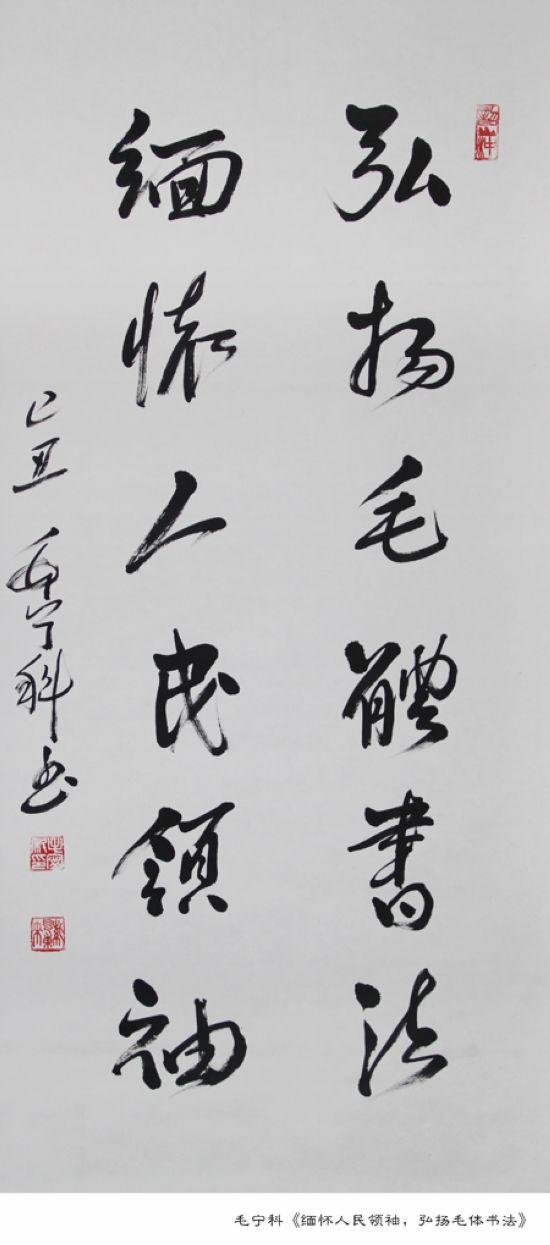 弘扬毛體書法
缅怀人民領袖
己丑 毛宁科书
毛宁科《缅怀人民领袖，弘扬毛体书法》